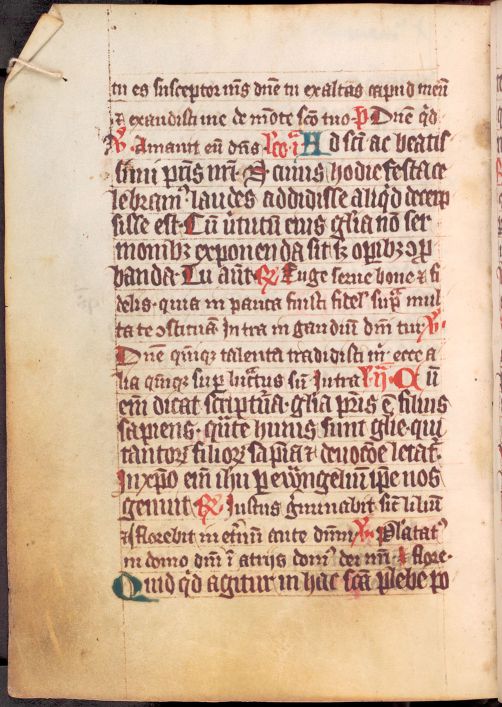 tu es susceptor me͛s dn̄e tu exaltas caput meū
⁊ exaudisti me de mōte scō tuo · p̄ Dn̄e q̇d
℣ · Amauit eū dn̄s lc̄o · i A d sc̄i ac beatis
simi pr̄is nr̄i · S cuius hodie festa ce
lebram᷒ laudes addidisse aliq̇d decerp
sisse est · Cū u̇tutū eius gl̄ia nō ser
monibꝫ exponenda sit sꝫ opibꝫ ꝯp
banda · Tu aut̄ ℟ Euge serue bone ⁊ fi
delis · quia in pauca fuisti fidel᷒ sup̄ mul
ta te ꝯstituā Intra in gaudiū dn̄i tui ℣ ·
Dn̄e quinqꝫ talenta tradidisti m̊ · ecce a
lia quinqꝫ sup lucratus sū Intra l · ij · C ū
em̄ dicat scriptura · gl̄ia pr̄is ē filius
sapiens · quāte huius sunt gl̄ie · qui
tantoꝝ filioꝝ sapīa ⁊ deuotōe letat᷒ ·
In xp̄o em̄ ihū p ewangeliū ip̄e uos
genuit ℟ Iustus g̊minabit sic̄ liliū
⁊ florebit in et̄nū ante dn̄m · ℣ · Plātat᷒
in domo dn̄i ī atrijs dom᷒ dei nr̄i ⁊ flore ·
Quid q̇d agitur in hac sc̄a plebe po